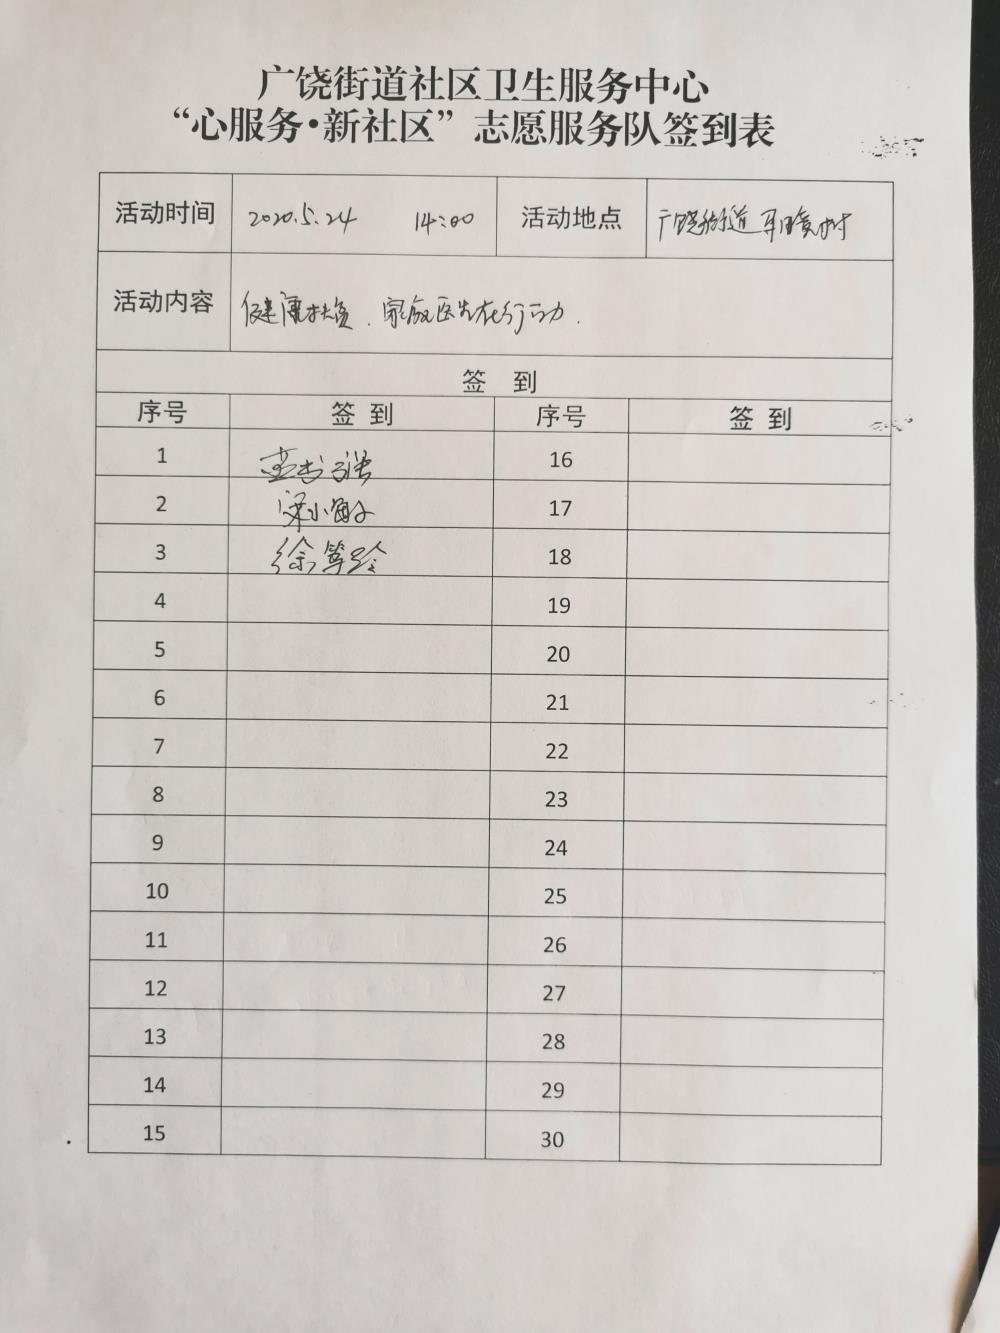 广饶街道社区卫生服务中心
“心服务·新社区”志愿服务队签到表
活动时间 2020.5.24 14:00 活动地点 广饶街道
活动内容 健康扶贫.家庭医生在行动.
签 到
序号 签到 序号 签到
1 16
2 宋小敏 17
3 徐 18
4 19
5 20
6 21
7 22
8 23
9 24
10 25
11 26
12 27
13 28
14 29
15 30